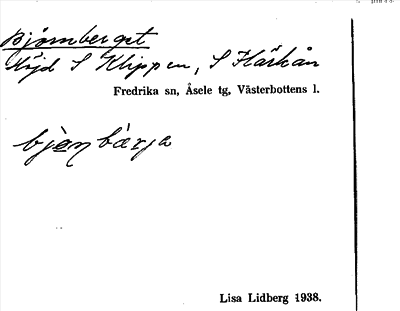 Björnberget
Höjd S Klippen, S Flärkån
Fredrika sn, Åsele tg, Västerbottens l.
bjønbærja
Lisa Lidberg 1938.